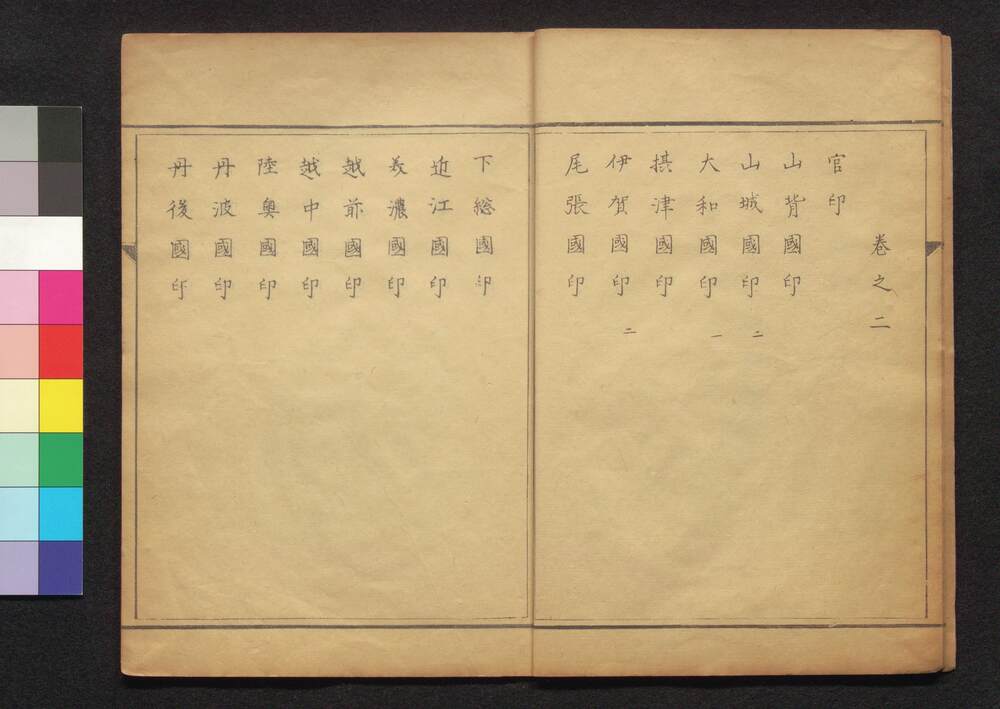 卷之二
官印
山背國印
山城國印 二
大和國印 一
摂津國印
伊賀國印 二
尾張國印
下総國印
近江國印
美濃國印
越前國印
越中國印
陸奥國印
丹波國印
丹後國印